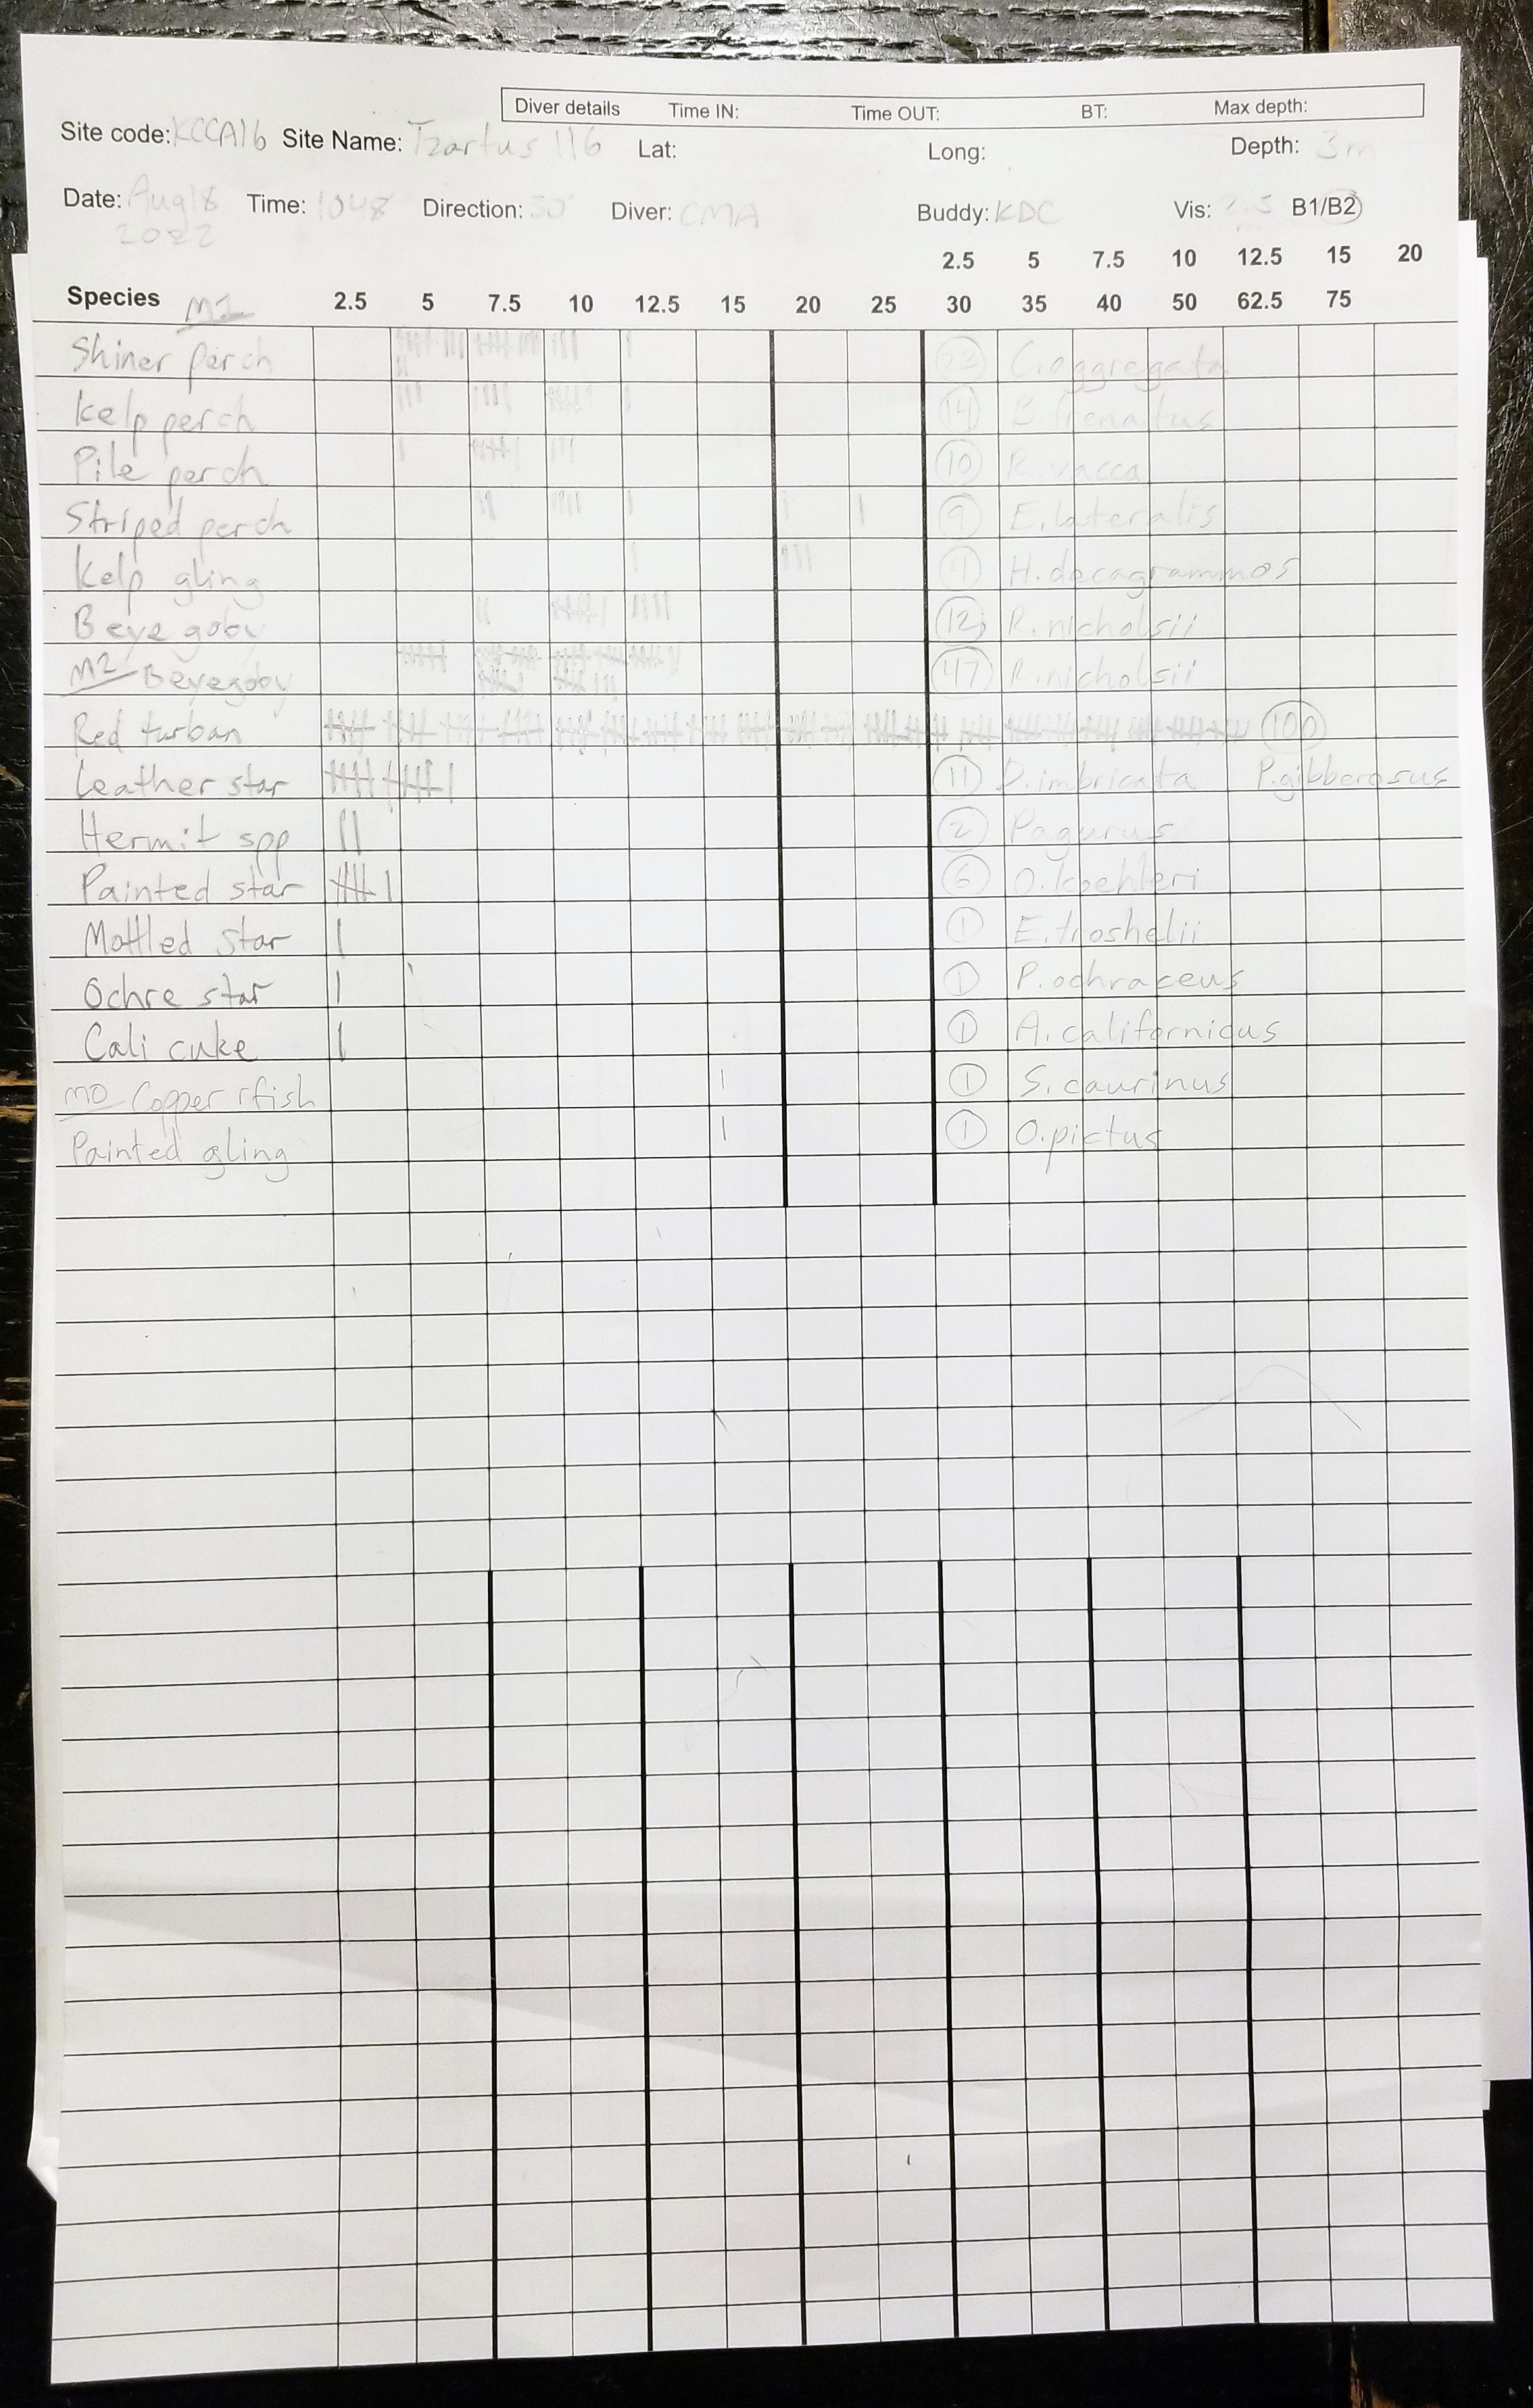 Diver details Time IN: Time OUT: BT: Max depth:
Site code: KCCA16 Site Name: Tzartus 116 Lat: Long: Depth: 3m
Date: Aug 18 2022 Time: 1048 Direction: Diver: CMA Buddy: KDC Vis: B1/B2
2.5 5 7.5 10 12.5 15 20
Species M1 2.5 5 7.5 10 12.5 15 20 25 30 35 40 50 62.5 75
Shiner perch 23 C. aggregata
Kelp perch 14 B. frenatus
Pile perch 10 R. vacca
Striped perch 9 E. lateralis
Kelp gling 4 H. decagrammos
B eye goby 12 R. nicholsii
M2 B eye goby 47 R. nicholsii
Red turban 100
Leather star 11 D. imbricata P. gibberosus
Hermit spp 2 Pagurus
Painted star 6 O. koehleri
Mottled star 1 E. troshelii
Ochre star 1 P. ochraceus
Cali cuke 1 A. californicus
M0 Copper rfish 1 S. caurinus
Painted gling 1 O. pictus